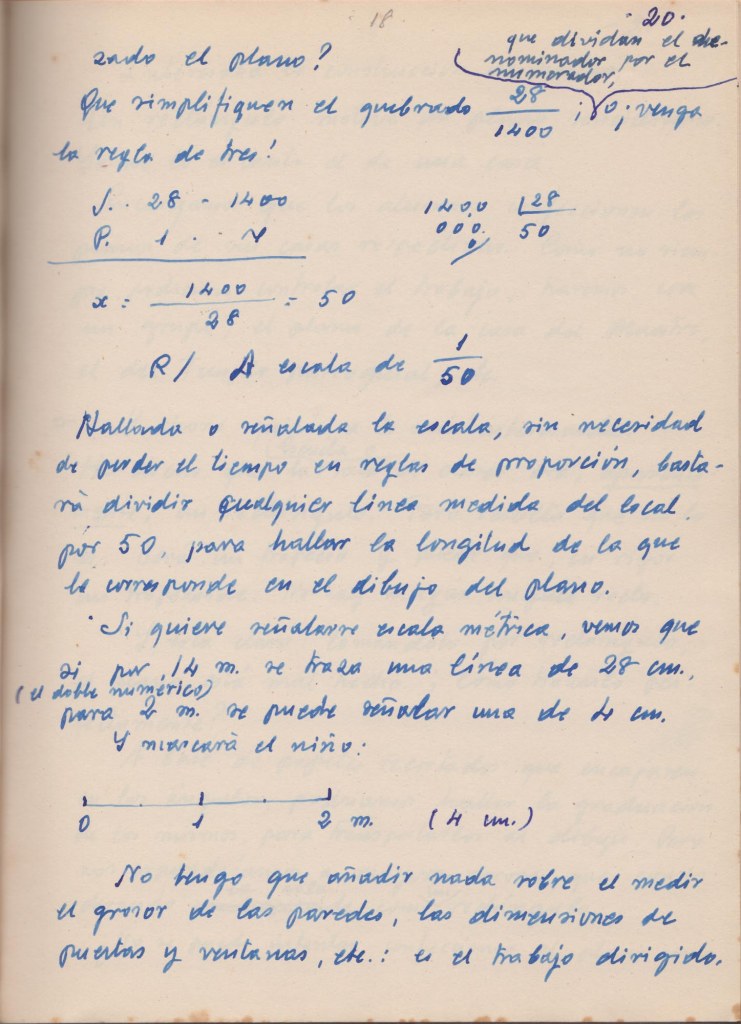 18
20.
que dividan el de-
nominador por el
numerador,
zado el plano?
Que simplifiquen el quebrado 28/1400 ; o ; venga
la regla de tres!
S. 28 - 1400
P. 1 - X
1400 | 28
000 50
0
x = 1400/28 = 50
R/ A escala de 1/50
Hallada o señalada la escala, sin necesidad
de perder el tiempo en reglas de proporción, basta-
rá dividir cualquier línea medida del local
por 50, para hallar la longitud de la que
le corresponde en el dibujo del plano.
Si quiere señalarse escala métrica, vemos que
si por 14 m. se traza una línea de 28 cm.,
(el doble numérico)
para 2 m. se puede señalar una de 4 cm.
Y marcará el niño:
0 1 2 m. (4 cm.)
No tengo que añadir nada sobre el medir
el grosor de las paredes, las dimensiones de
puertas y ventanas, etc.: es el trabajo dirigido.